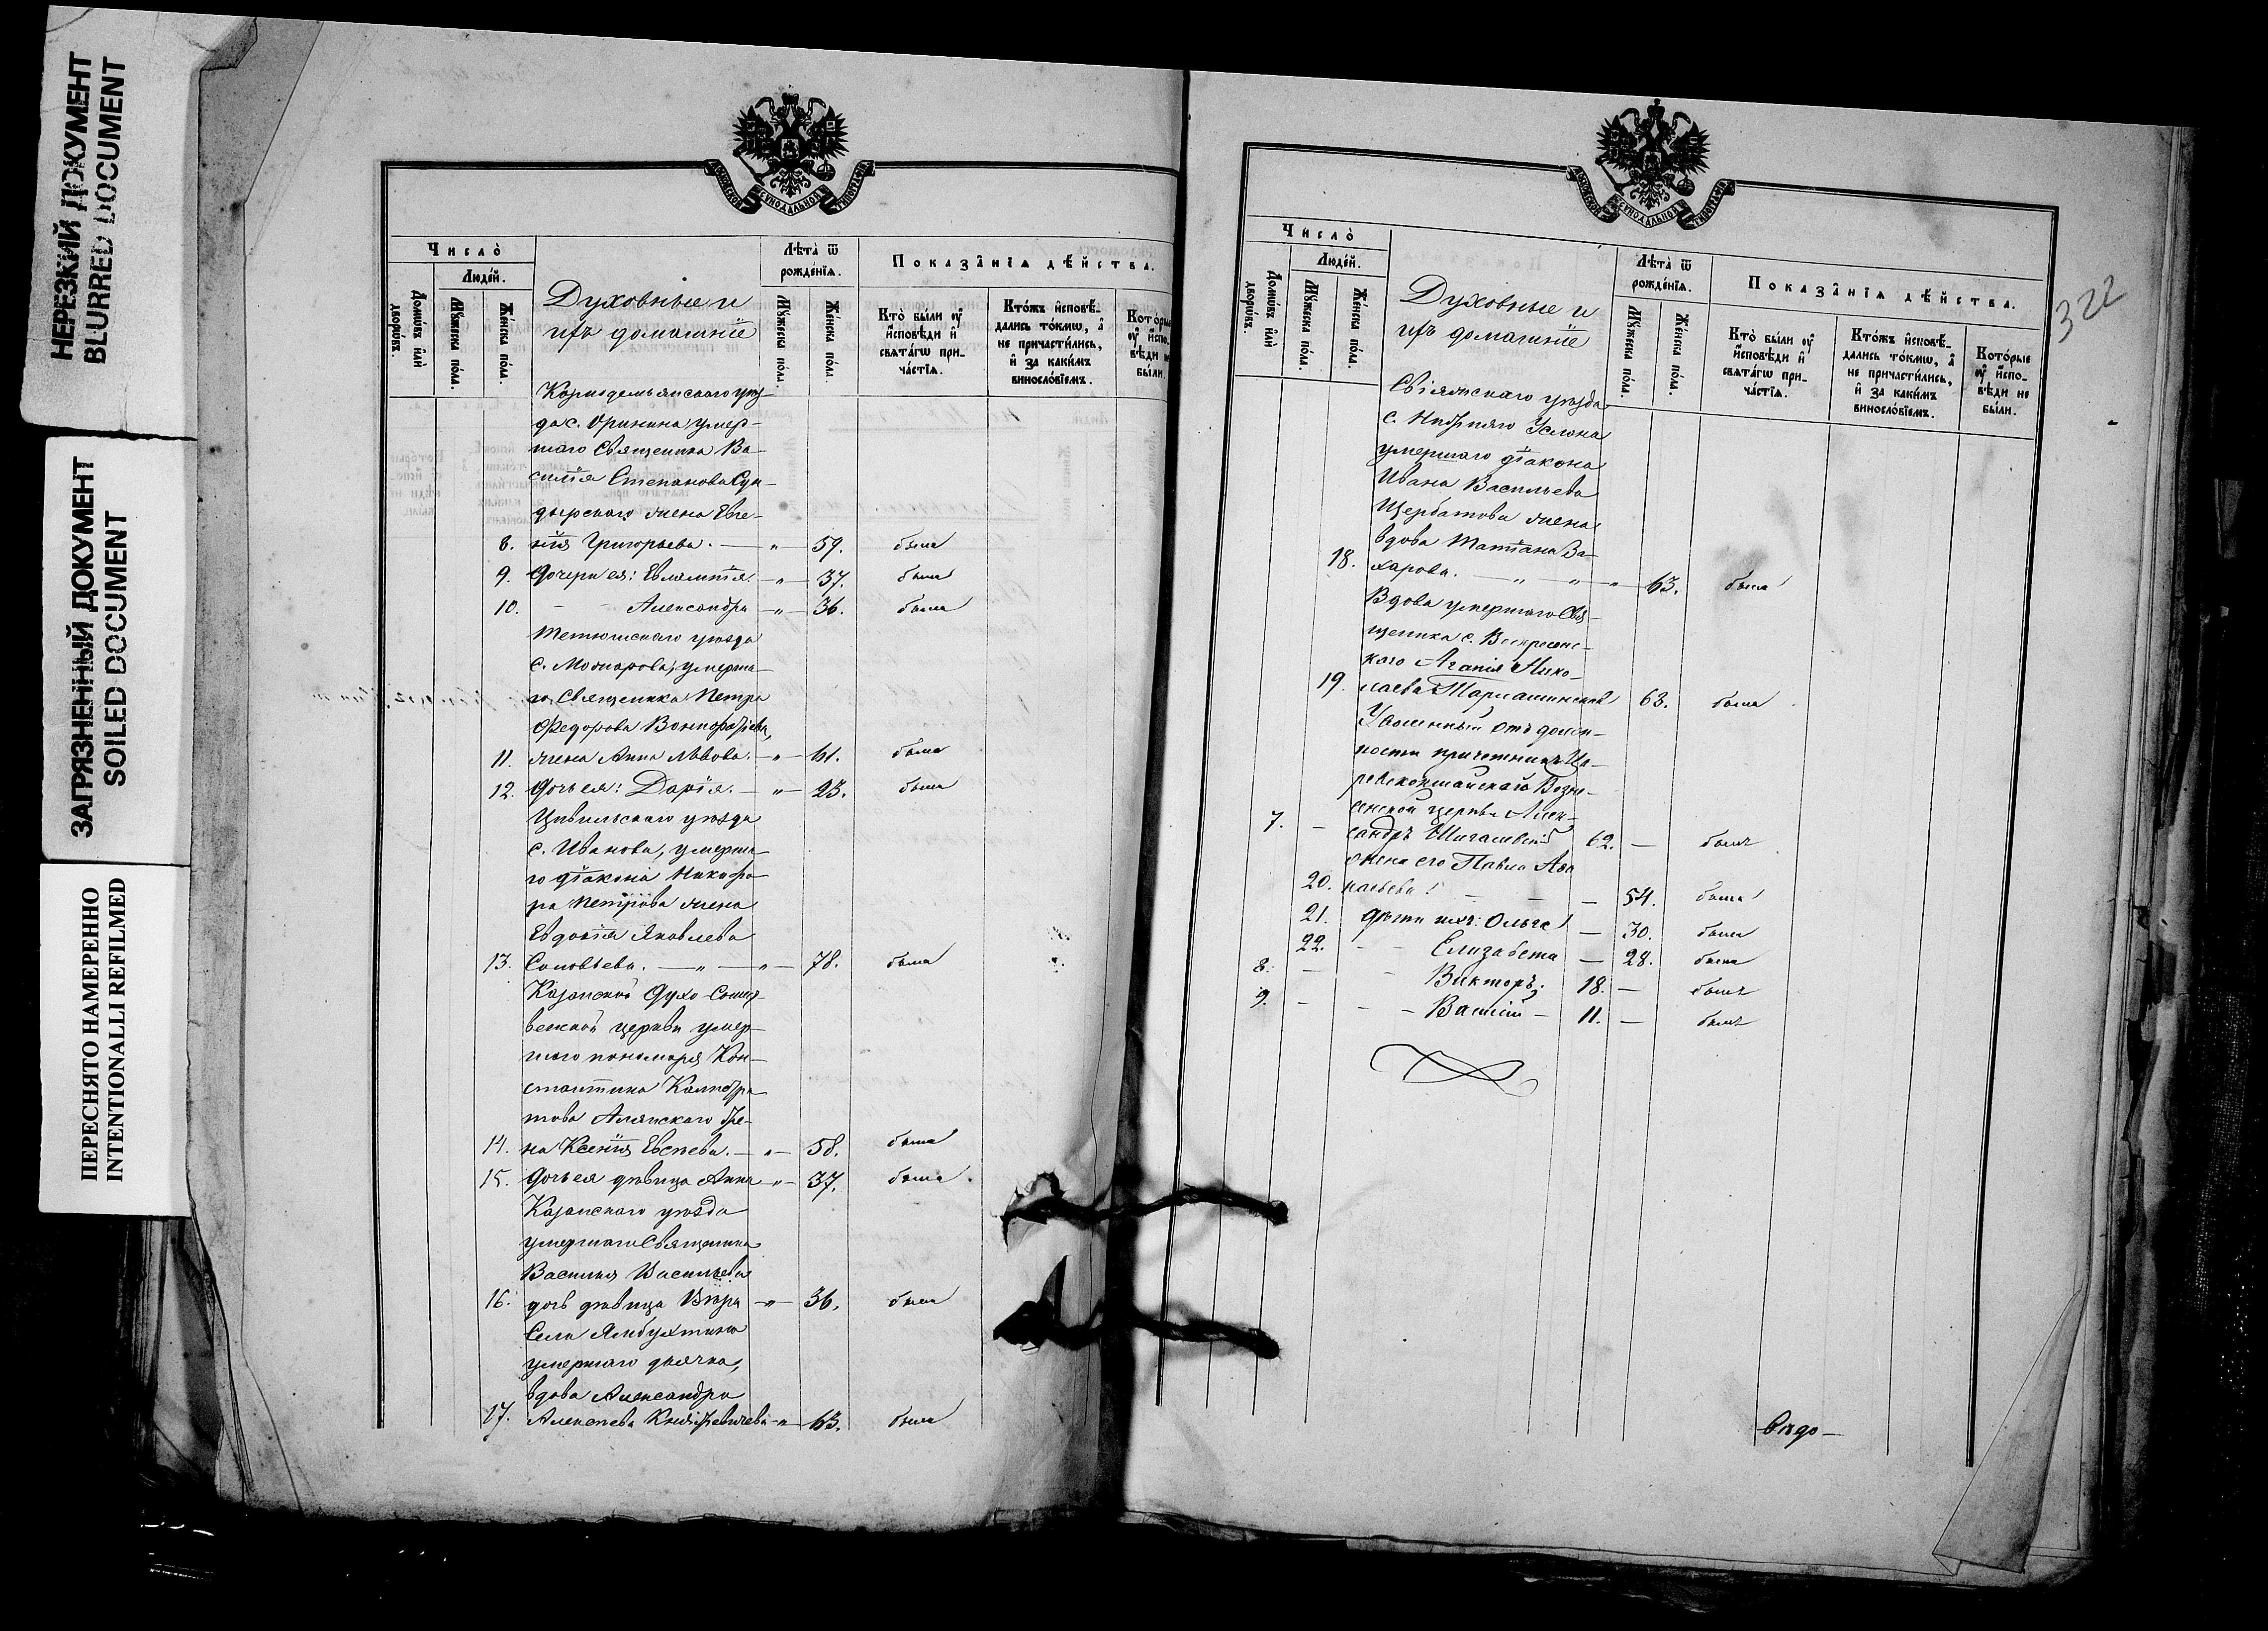 НЕРЕЗКИЙ ДОКУМЕНТ
BLURRED DOCUMENT
ЗАГРЯЗНЕННЫЙ ДОКУМЕНТ
SOILED DOCUMENT
ПЕРЕСНЯТО НАМЕРЕННО
INTENTIONALLI REFILMED
МОСКОВСКОЙ СѴНОДАЛЬНОЙ ТИПОГРАФІИ
Число̀
Людѐй.
Домѡ́въ и҆лѝ дворѡ́въ.
Мꙋ́жеска по́ла.
Же́нска по́ла.
Духовные и
ихъ домашніе
Лѣта̀ ѿ рожде́нїѧ.
Мꙋ́жеска по́ла.
Же́нска по́ла.
Показа̑нїѧ дѣ́йства.
Кто̀ бы́ли ᲂу҆ и҆сповѣ́ди и҆ свѧта́гѡ прича́стїѧ.
Кто́жъ и҆сповѣ́дались то́кмѡ, а҆ не причасти́лись, и҆ за каки́мъ винослóвїемъ.
Кото́рые ᲂу҆ и҆спо-
вѣ́ди не
бы́ли.
Козмодемьянскаго уѣз-
да с. Оринина умер-
шаго Священника Ва-
силія Степанова Сун-
дырскаго жена Евге-
8. нія Григорьева. — „ — 59. была
9. Дочери ея: Евлампія — „ — 37. была
10. — Александра — „ — 36. была
Тетюшскаго уѣзда
умерша-
го Священника Петра
Федорова
11. жена Анна Львова. — „ — 61. была
12. Дочь ея: Дарія. — „ — 23. была
Цивильскаго уѣзда
с. Иванова, умерша-
го діакона Никифо-
ра Петрова жена
Евдокія Яковлева
13. Соловьева. — „ — „ — 78. была
Казанской Духо-Сошест-
венской церкви умер-
шаго пономаря Кон-
стантина
това же-
14. на Ксенія — „ — 58. была
15. Дочь ея дѣвица Анна — „ — 37. была
Казанскаго уѣзда
умершаго Священника
Василія Васильева
16. дочь дѣвица Вѣра — „ — 36. была
Села Ямбухтина
умершаго дьячка,
вдова Александра
17. Алексѣева — „ — 63. была
322
МОСКОВСКОЙ СѴНОДАЛЬНОЙ ТИПОГРАФІИ
Число̀
Людѐй.
Домѡ́въ и҆лѝ дворѡ́въ.
Мꙋ́жеска по́ла.
Же́нска по́ла.
Духовные и
ихъ домашніе
Лѣта̀ ѿ рожде́нїѧ.
Мꙋ́жеска по́ла.
Же́нска по́ла.
Показа̑нїѧ дѣ́йства.
Кто̀ бы́ли ᲂу҆ и҆сповѣ́ди и҆ свѧта́гѡ прича́стїѧ.
Кто́жъ и҆сповѣ́дались то́кмѡ, а҆ не причасти́лись, и҆ за каки́мъ винослóвїемъ.
Кото́рые ᲂу҆ и҆спо-
вѣ́ди не
бы́ли.
Свіяжскаго уѣзда
с. Нижняго Услона
умершаго діакона
Ивана Васильева
Щербатова жена
вдова Татіана За-
18. харова. — „ — „ — „ — 63. была
Вдова умершаго Свя-
щенника с. Воскресенс-
каго Агапія Нико-
19. лаева 63. была
Уволенный отъ долж-
ности причетникъ Ца-
ревококшайской Возне-
сенской церкви Алек-
7. — сандръ 62. — былъ
жена его Павла
20. — 54. была
21. дѣти ихъ: Ольга — 30. была
22. — — Елизабета — 28. была
8. — — Викторъ. 18. — былъ
9. — — Василій — 11. — былъ
Вѣдо-